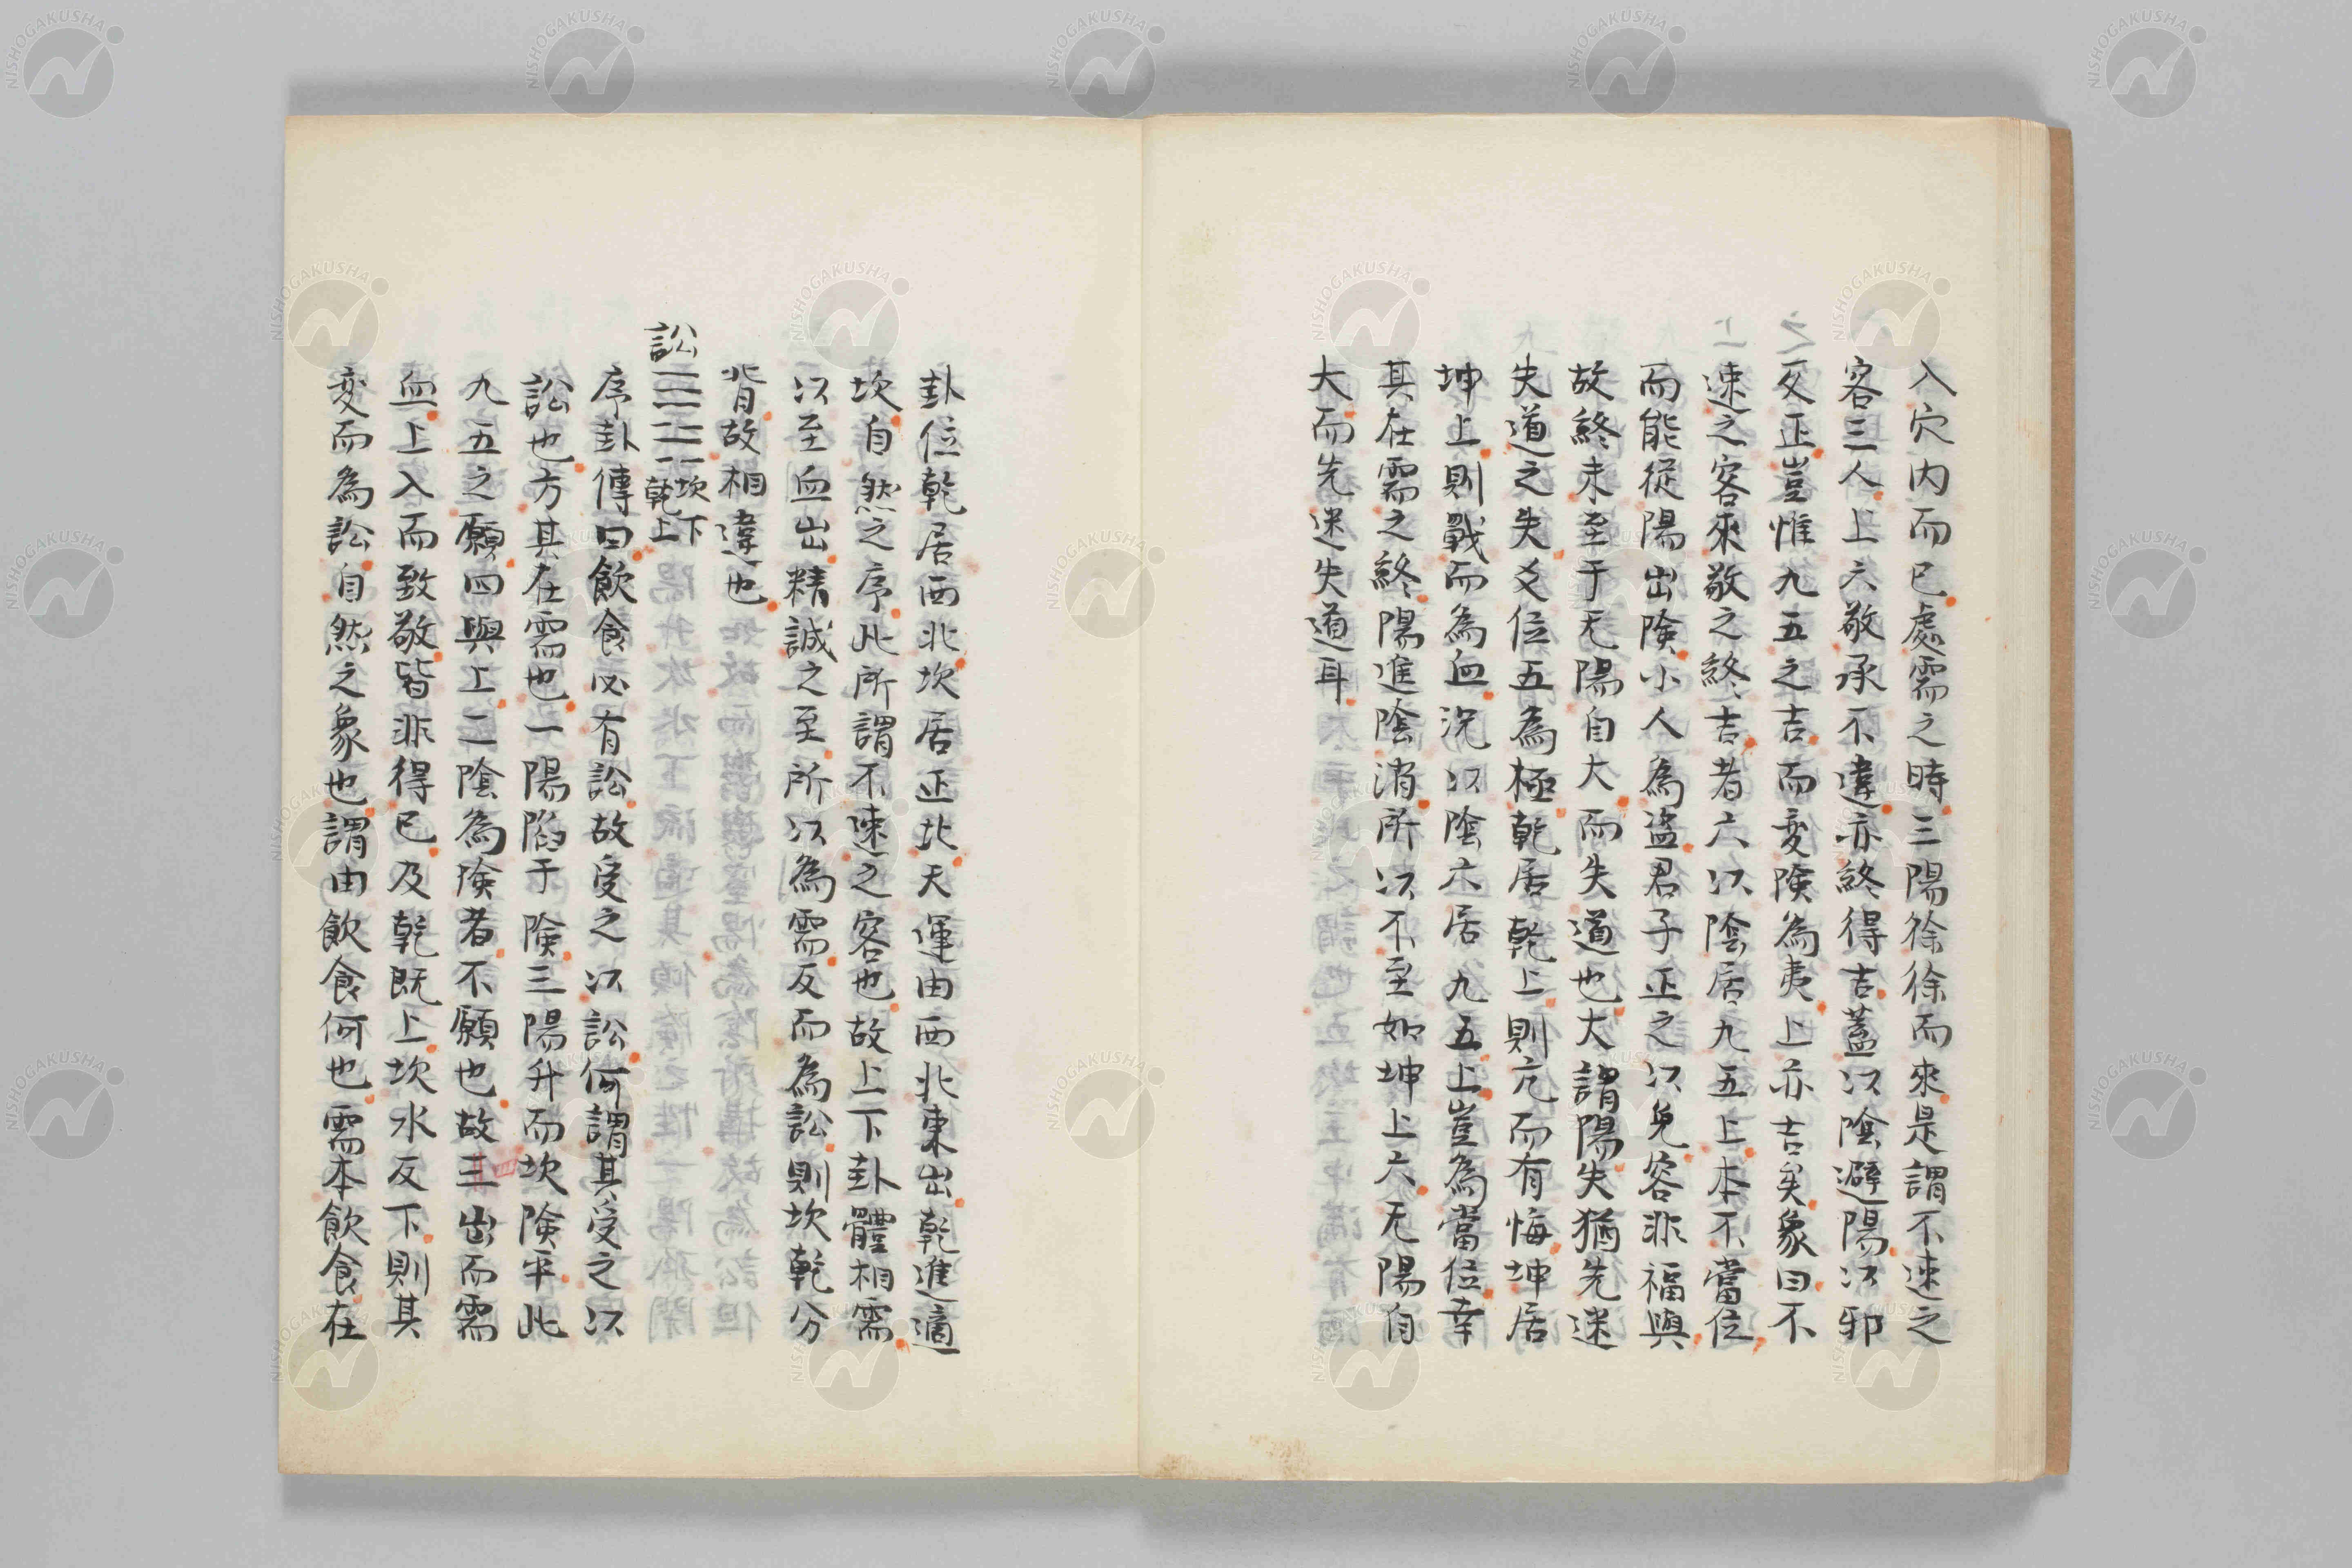 入穴内而已處需之時三陽徐徐而來是謂不速之
客三人上六敬承不違亦終得吉蓋以陰避陽以邪
之反正豈惟九五之吉而変険為夷上亦吉矣象曰不
速之客來敬之終吉者六以陰居九五上本不當位
而能從陽出険小人為盗君子正之以免容非福與
故終未至于无陽自大而失道也大謂陽失猶先迷
失道之失爻位五為極乾居乾上則亢而有悔坤居
坤上則戰而為血況以陰六居九五上豈為當位幸
其在需之終陽進陰消所以不至如坤上六无陽自
大而先迷失道耳
卦位乾居西北坎居正北天運由西北東出乾進適
坎自然之序此所謂不速之客也故上下卦體相需
以至血出精誠之至所以為需反而為訟則坎乾分
背故相違也
訟 坎下乾上
序卦傳曰飲食必有訟故受之以訟何謂其受之以
訟也方其在需也一陽陷于険三陽升而坎険平此
九五之願四與上二陰為険者不願也故三出而需
血上入而致敬皆非得已及乾既上坎水反下則其
変而為訟自然之象也謂由飲食何也需本飲食在
NISHOGAKUSHA